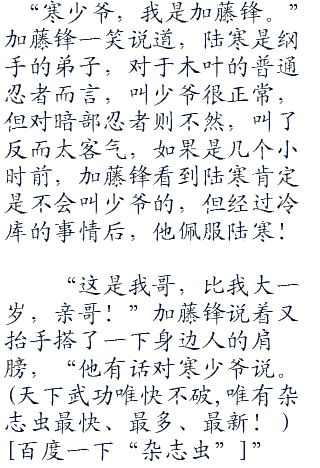 “寒少爷，我是加藤锋。”
加藤锋一笑说道，陆寒是纲
手的弟子，对于木叶的普通
忍者而言，叫少爷很正常，
但对暗部忍者则不然，叫了
反而太客气，如果是几个小
时前，加藤锋看到陆寒肯定
是不会叫少爷的，但经过冷
库的事情后，他佩服陆寒！
“这是我哥，比我大一
岁，亲哥！”加藤锋说着又
抬手搭了一下身边人的肩
膀，“他有话对寒少爷说。
(天下武功唯快不破,唯有杂
志虫最快、最多、最新！)
[百度一下“杂志虫”]”